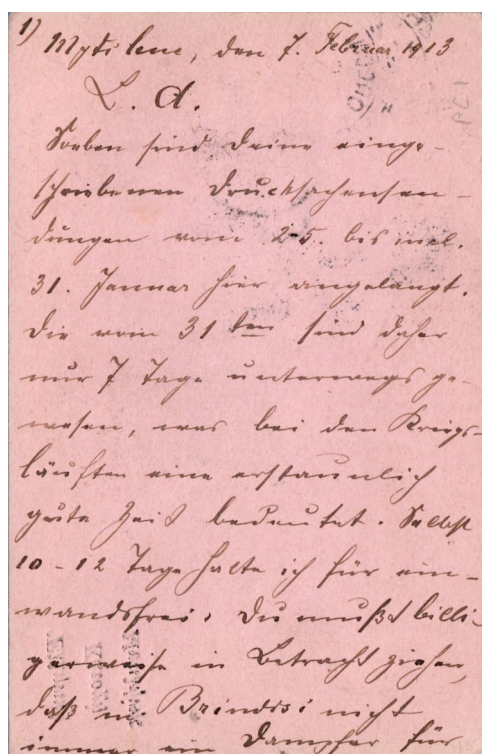 1)
Mytilene, den 7. Februar 1913
L. A.
Soeben sind Deine einge-
schriebenen Drucksachensen-
dungen vom 25. bis incl.
31. Januar hier angelangt.
Die vom 31ten sind daher
nur 7 Tage unterwegs ge-
wesen, was bei den Kriegs-
läuften eine erstaunlich
gute Zeit bedeutet. Selbst
10-12 Tage halte ich für ein-
wandsfrei. Du mußt billi-
gerweise in Betracht ziehen,
daß in Brindisi nicht
immer ein Dampfer für